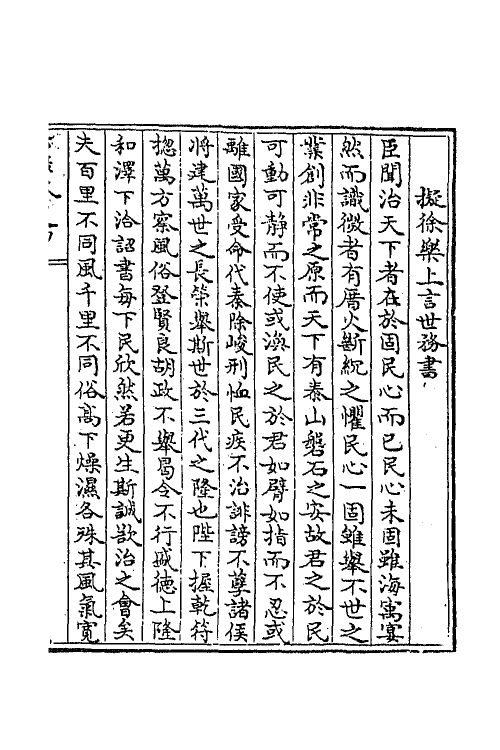 擬徐樂上言世務書
臣聞治天下者在於固民心而已民心未固雖海寓宴
然而識微者有厝火斷綂之懼民心一固雖舉不世之
業創非常之原而天下有泰山磐石之安故君之於民
可動可静而不使或渙民之於君如臂如指而不忍或
離國家受命代秦除峻刑恤民疾不治誹謗不孽諸侯
將建萬世之長策舉斯世於三代之隆也陛下握乾符
揔萬方察風俗登賢良胡政不舉曷令不行咸德上隆
和澤下洽詔書每下民欣然若更生斯誠欲治之會矣
夫百里不同風千里不同俗髙下燥濕各殊其風氣寛